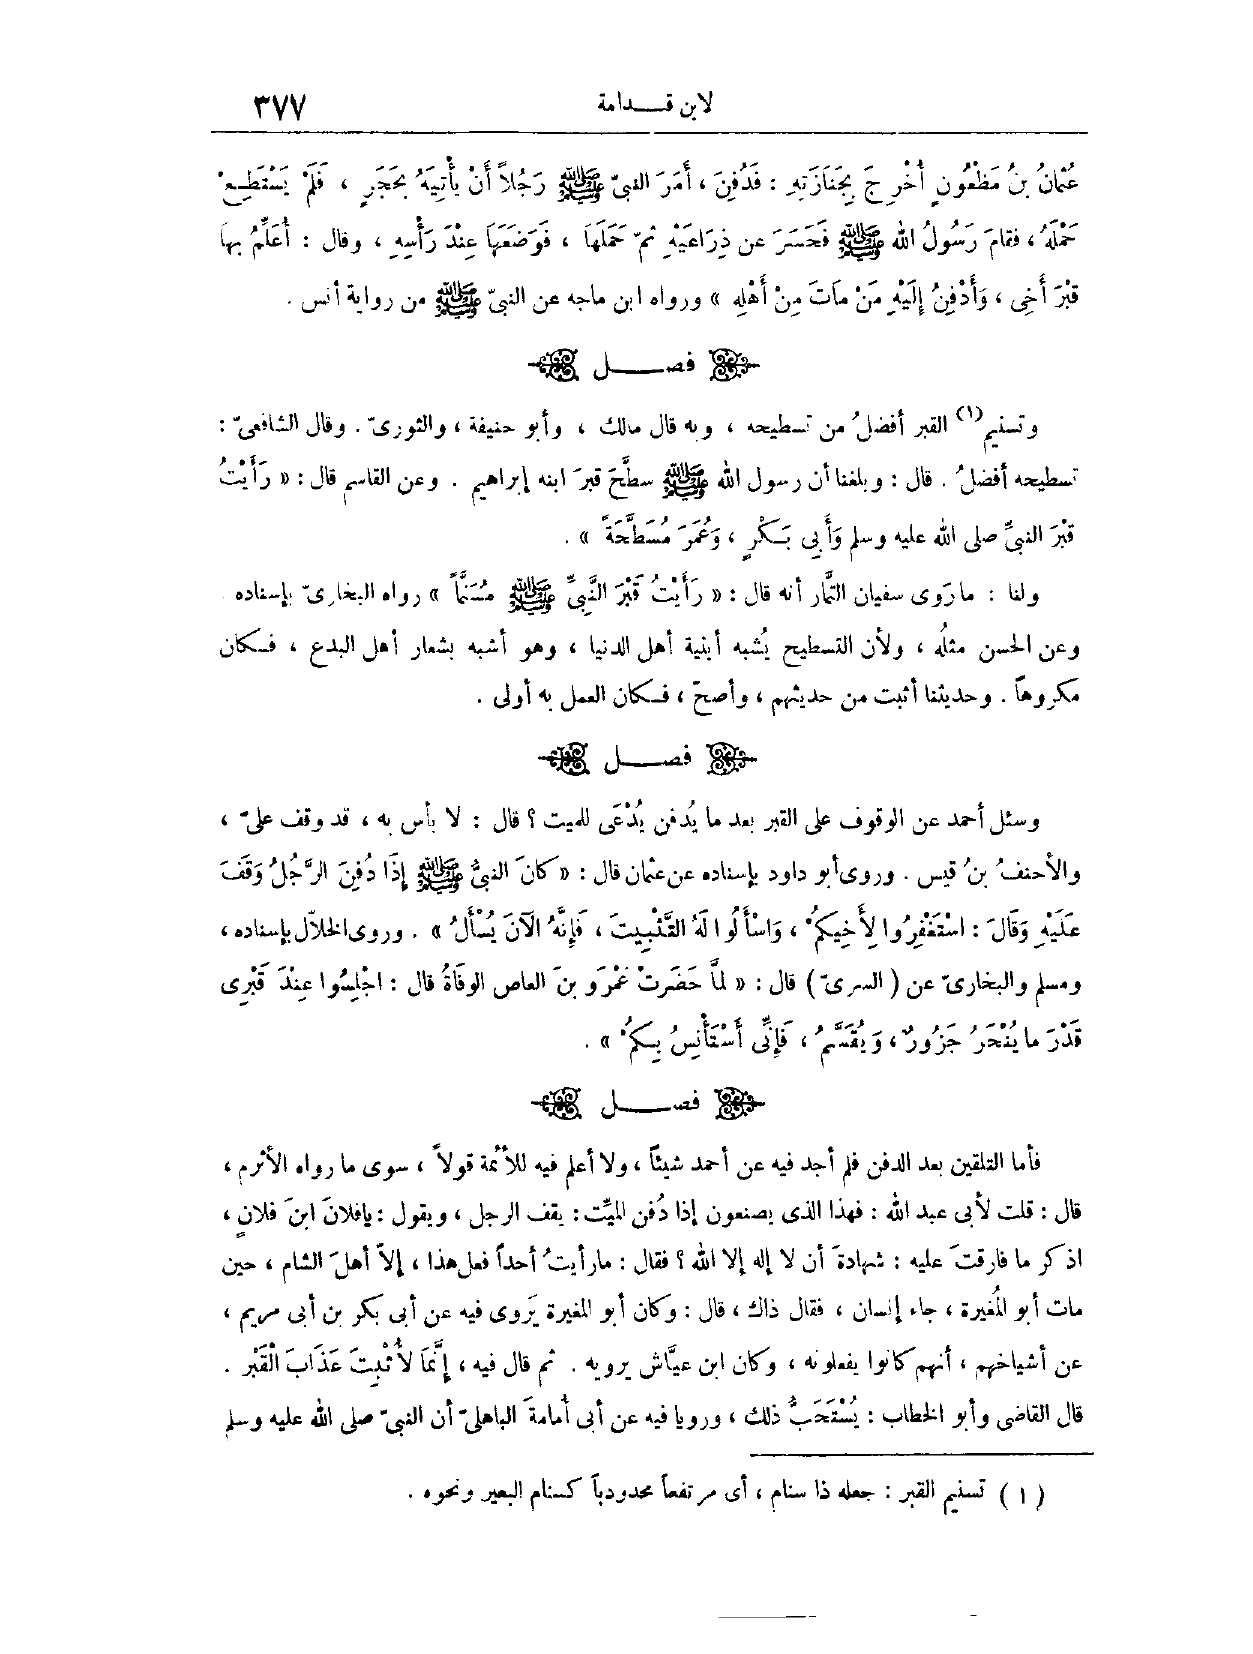 لابن قــدامة ٣٧٧
عُثْمَانُ بنُ مَظْعُونٍ أُخْرِجَ بِجَنَازَتِهِ : فَدُفِنَ ، أَمَرَ النبىّ ﷺ رَجُلاً أَنْ يأْتِيَهُ بحَجَرٍ ، فَلَمْ يَسْتَطِعْ
حَمْلَهُ ، فقامَ رَسُولُ الله ﷺ فَحَسَرَ عن ذِرَاعَيْهِ ثمّ حَمَلَهَا ، فَوَضَعَهَا عِنْدَ رَأْسِهِ ، وقال : أُعَلِّمُ بها
قبْرَ أَخِى ، وَأَدْفِنُ إِلَيْهِ مَنْ مَاتَ مِنْ أَهْلِهِ » ورواه ابن ماجه عن النبىّ ﷺ من رواية أنس .
فصــل
وتسنيم(١) القبر أفضلُ من تسطيحه ، وبه قال مالك ، وأبو حنيفة ، والثورىّ . وقال الشافعىّ :
تسطيحه أفضلُ . قال : وبلغنا أن رسول الله ﷺ سطَّحَ قبرَ ابنه إبراهيم . وعن القاسم قال : « رَأَيْتُ
قبْرَ النبىِّ صلى الله عليه وسلم وَأَبِى بَكْرٍ ، وَعُمَرَ مُسَطَّحَةً » .
ولنا : ما رَوى سفيان التَّمار أنه قال : « رَأَيْتُ قَبْرَ النَّبِىِّ ﷺ مُسَنَّماً » رواه البخارىّ بإسناده
وعن الحسن مثلُه ، ولأن التسطيح يُشبه أبنية أهل الدنيا ، وهو أشبه بشعار أهل البدع ، فكان
مكروهاً . وحديثنا أثبت من حديثهم ، وأصحّ ، فكان العمل به أولى .
فصــل
وسئل أحمد عن الوقوف على القبر بعد ما يُدفن يُدْعَى للميت ؟ قال : لا بأس به ، قد وقف علىّ ،
والأحنفُ بنُ قيس . وروى أبو داود بإسناده عن عثمان قال : « كانَ النبىُّ ﷺ إِذَا دُفِنَ الرَّجُلُ وَقَفَ
عَلَيْهِ وَقَالَ : اسْتَغْفِرُوا لِأَخِيكُمْ ، وَاسْأَلُوا لَهُ التَّثْبِيتَ ، فَإِنَّهُ الآنَ يُسْأَلُ » . وروى الخلاّل بإسناده ،
ومسلم والبخارىّ عن ( السرىّ ) قال : « لمَّا حَضَرَتْ عَمْرَو بنَ العاص الوفَاةُ قال : اجْلِسُوا عِنْدَ قَبْرِى
قَدْرَ ما يُنْحَرُ جَزُورٌ ، وَيُقَسَّمُ ، فَإِنِّى أَسْتَأْنِسُ بِكُمْ » .
فصــل
فأما التلقين بعد الدفن فلم أجد فيه عن أحمد شيئاً ، ولا أعلم فيه للأئمة قولاً ، سوى ما رواه الأثرم ،
قال : قلت لأبى عبد الله : فهذا الذى يصنعون إذا دُفن الميِّت : يقف الرجل ، ويقول : يا فلانَ ابنَ فلانٍ ،
اذكر ما فارقتَ عليه : شهادةَ أن لا إله إلا الله ؟ فقال : ما رأيتُ أحداً فعل هذا ، إلاّ أهلَ الشام ، حين
مات أبو المُغيرة ، جاء إنسان ، فقال ذاك ، قال : وكان أبو المغيرة يَروى فيه عن أبى بكر بن أبى مريم ،
عن أشياخهم ، أنهم كانوا يفعلونه ، وكان ابن عيَّاش يرويه . ثم قال فيه ، إِنَّمَا لأُثْبِتَ عَذَابَ الْقَبْر .
قال القاضى وأبو الخطاب : يُسْتَحَبُّ ذلك ، ورويا فيه عن أبى أُمامةَ الباهلىّ أن النبىّ صلى الله عليه وسلم
( ١ ) تسنيم القبر : جعله ذا سنام ، أى مرتفعاً محدودباً كسنام البعير ونحوه .